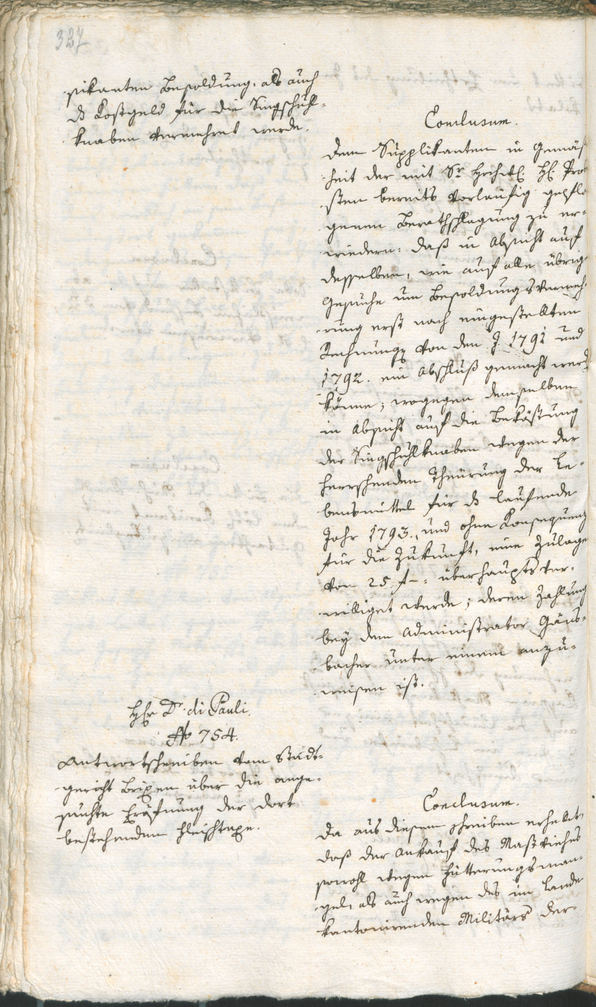 337
plikanten Besoldung, als auch
ds Kostgeld für die Singschul-
knaben vermehret werde.
Conclusum.
Dem Supplikanten in Gemäs
heit der mit Sr Hl. Pro
sten bereits vorläufig gepflo
genen Berathschlagung zu er-
wiedern: daß in Absicht auf
desselben, wie auf alle übrige
Gesuche um Besoldungs Vermeh-
rung erst nach eingestellten
Rechnungen von den J. 1791 und
1792. ein Abschluß gemacht werd
könne; wogegen demselben
in Absicht auf die Beköstung
der Singschulknaben wegen der
herrschenden Theurung der Le-
bensmittel für ds laufende
Jahr 1793., und ohne Konsequenz
für die Zukunft, eine Zulage
von 25 f –: überhaupts ver-
williget werde; deren Zahlung
bey dem Administrator Gäns-
bacher unter einem anzu-
weisen ist.
Hr Dr. di Pauli
No 754.
Antwortschreiben vom Stadt-
gericht Brixen über die ange-
suchte Eröfnung der dort
bestehenden Fleischtaxe.
Conclusum.
Da aus diesem Schreiben erhellet
daß der Ankauf des Mastviehes
sowohl wegen Fütterungsman-
gel, als auch wegen des im Lande
kantonirenden Militärs der-